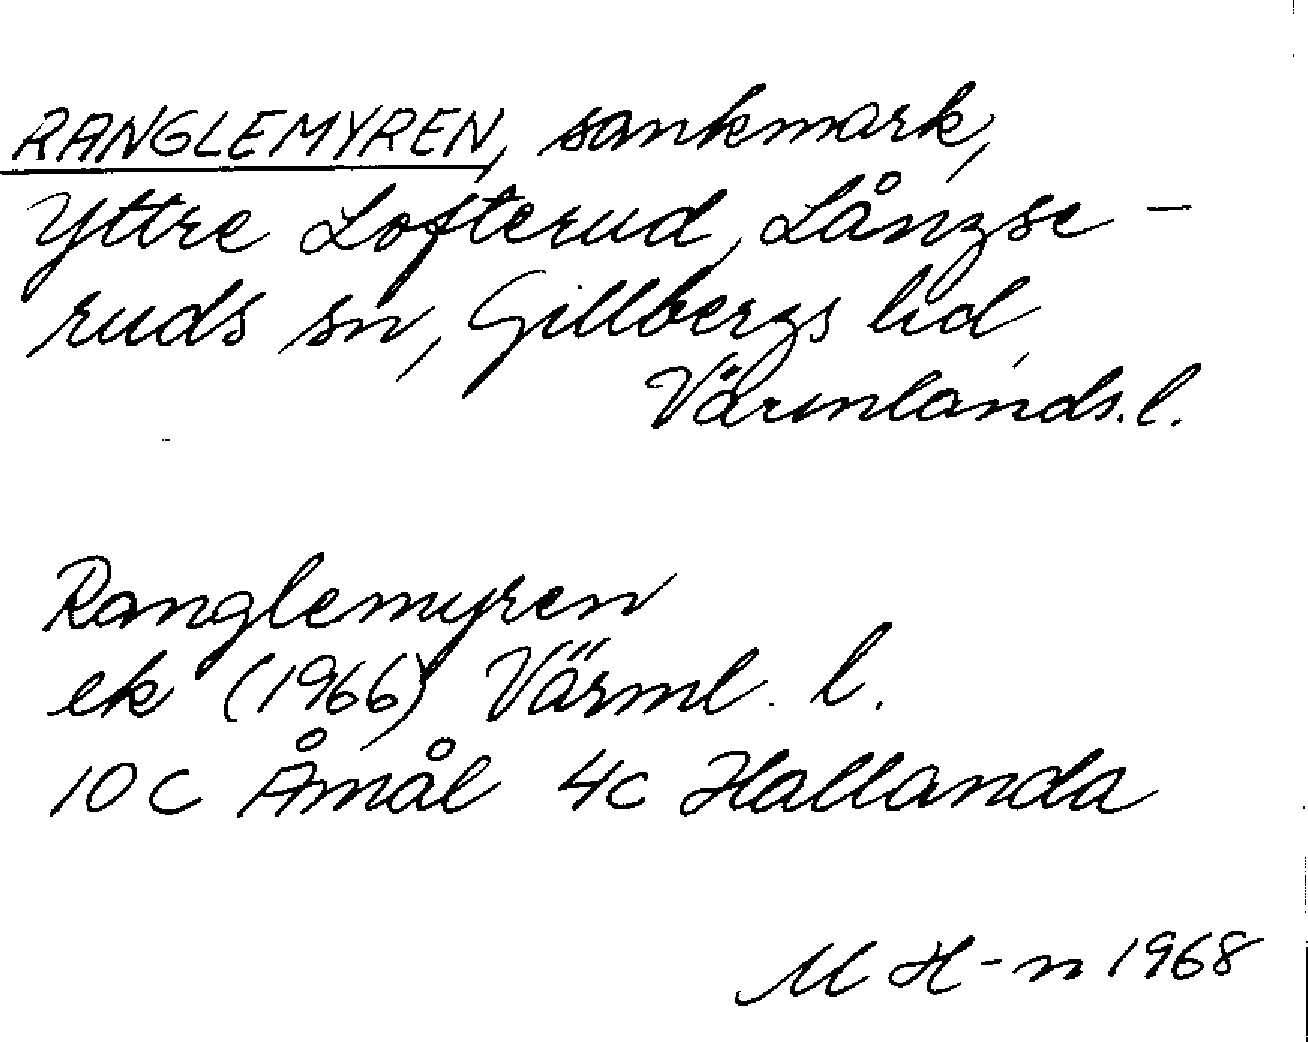 RANGLEMYREN, sankmark,
Yttre Lofterud, Långse-
ruds sn, Gillbergs hd,
Värmlands. l.
Ranglemyren
ek (1966) Värml. l.
10 C Åmål 4c Hallanda
M H-n 1968